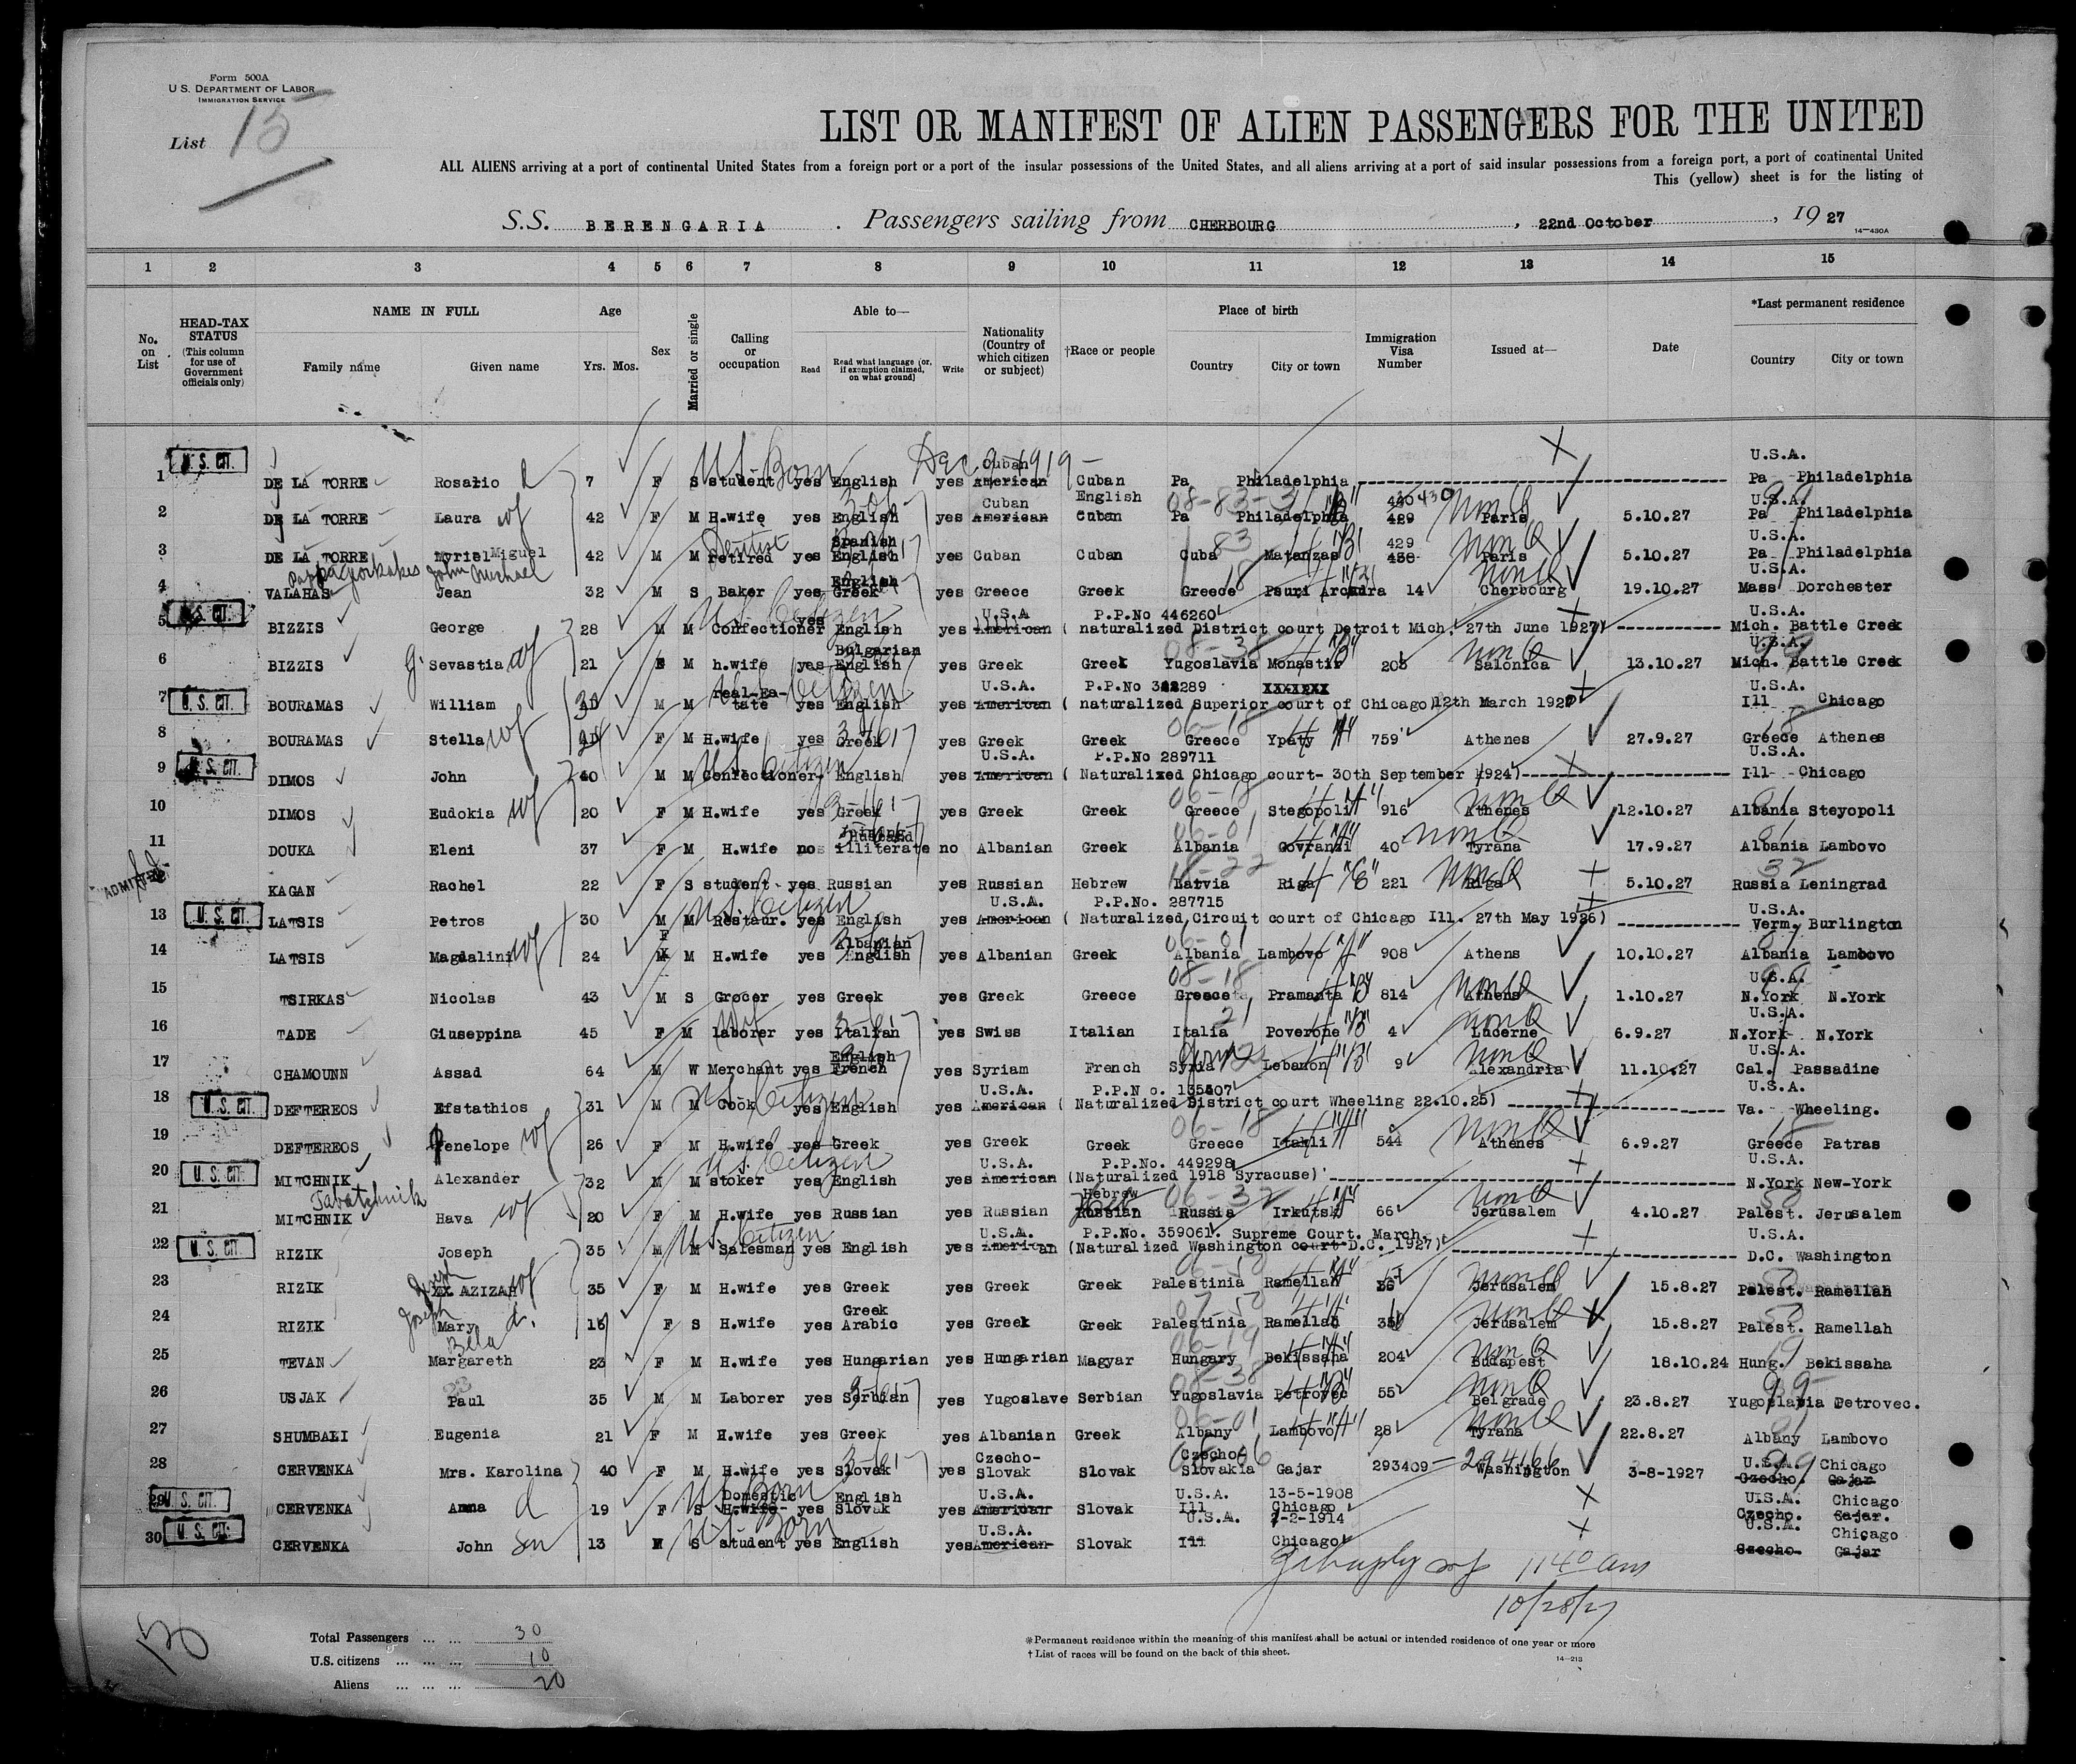 Form 500A
U. S. DEPARTMENT OF LABOR
IMMIGRATION SERVICE
List 15
LIST OR MANIFEST OF ALIEN PASSENGERS FOR THE UNITED
ALL ALIENS arriving at a port of continental United States from a foreign port or a port of the insular possessions of the United States, and all aliens arriving at a port of said insular possessions from a foreign port, a port of continental United
This (yellow) sheet is for the listing of
S.S. BERENGARIA . Passengers sailing from CHERBOURG , 22nd October , 1927
14—430A
1 2 3 4 5 6 7 8 9 10 11 12 13 14 15
No. on List
HEAD-TAX STATUS (This column for use of Government officials only)
NAME IN FULL Family name Given name
Age Yrs. Mos.
Sex
Married or single
Calling or occupation
Able to— Read Read what language (or, if exemption claimed, on what ground) Write
Nationality (Country of which citizen or subject)
†Race or people
Place of birth Country City or town
Immigration Visa Number
Issued at—
Date
*Last permanent residence Country City or town
U. S. CIT. U.S. Born Dec 9-1919- Cuban U.S.A.
1 DE LA TORRE Rosario d 7 F S student yes English yes American Cuban Pa Philadelphia Pa Philadelphia
Cuban English 430 U.S.A.
2 DE LA TORRE Laura wf 42 F M H.wife yes English yes American Cuban Pa Philadelphia 429 Paris 5.10.27 Pa Philadelphia
Dentist Spanish 429 U.S.A.
3 DE LA TORRE Miguel 42 M M retired yes English yes Cuban Cuban Cuba Matanzas 430 Paris 5.10.27 Pa Philadelphia
John Michael English U.S.A.
4 VALAHAS Jean 32 M S Baker yes Greek yes Greece Greek Greece Psuri 14 Cherbourg 19.10.27 Mass Dorchester
U. S. CIT. U.S. Citizen U.S.A P.P.No 446260 U.S.A.
5 BIZZIS George 28 M M Confectioner yes English yes American ( naturalized District court Detroit Mich. 27th June 1927) Mich. Battle Creek
Bulgarian U.S.A.
6 BIZZIS Sevastia wf 21 F M h.wife yes English yes Greek Greek Yugoslavia Monastir 205 Salonica 13.10.27 Mich. Battle Creek
U. S. CIT. real-Es- U.S. Citizen U.S.A. P.P.No XX-XXXX U.S.A.
7 BOURAMAS William M M tate yes English yes American ( naturalized Superior court of Chicago 12th March 192 Ill Chicago
8 BOURAMAS Stella wf F M H.wife yes Greek yes Greek Greek Greece Ypaty 759 Athenes 27.9.27 Greece Athenes
U. S. CIT. U.S. Citizen U.S.A. P.P.No 289711 U.S.A.
9 DIMOS John 40 M M Confectioner English yes American ( Naturalized Chicago court- 30th September 1924) Ill Chicago
10 DIMOS Eudokia wf 20 F M H.wife yes Greek yes Greek Greek Greece Stegopoli 916 Athenes 12.10.27 Albania Steyopoli
Joining Husband
11 DOUKA Eleni 37 F M H.wife no illiterate no Albanian Greek Albania Govranzi 40 Tyrana 17.9.27 Albania Lambovo
ADMITTED
12 KAGAN Rachel 22 F S student yes Russian yes Russian Hebrew Latvia Riga 221 Riga 5.10.27 Russia Leningrad
U. S. CIT. U.S. Citizen U.S.A. P.P.No. 287715 U.S.A.
13 LATSIS Petros 30 M M Restaur. yes English yes American ( Naturalized Circuit court of Chicago Ill. 27th May 1926) Verm. Burlington
F Albanian
14 LATSIS Magdalini wf 24 M M H.wife yes English yes Albanian Greek Albania Lambovo 908 Athens 10.10.27 Albania Lambovo
U.S.A.
15 TSIRKAS Nicolas 43 M S Grocer yes Greek yes Greek Greece Greece Pramanta 814 Athens 1.10.27 N.York N.York
U.S.A.
16 TADE Giuseppina 45 F M laborer yes Italian yes Swiss Italian Italia Poverone 4 Lucerne 6.9.27 N.York N.York
English U.S.A.
17 CHAMOUNN Assad 64 M W Merchant yes French yes Syriam French Syria Lebanon 9 Alexandria 11.10.27 Cal. Passadine
U. S. CIT. U.S. Citizen U.S.A. P.P.N o. U.S.A.
18 DEFTEREOS Efstathios 31 M M Cook yes English yes American ( Naturalized District court Wheeling 22.10.25) Va. Wheeling.
19 DEFTEREOS Penelope wf 26 F M H.wife yes Greek yes Greek Greek Greece 544 Athenes 6.9.27 Greece Patras
U. S. CIT. U.S. Citizen U.S.A. P.P.No. 449298 U.S.A.
20 MITCHNIK Alexander 32 M M stoker yes English yes American (Naturalized 1918 Syracuse) N.York New-York
Tabatchnik Hebrew
21 MITCHNIK Hava wf 20 F M H.wife yes Russian yes Russian Russian Russia Irkutsk 66 Jerusalem 4.10.27 Palest. Jerusalem
U. S. CIT. U.S. Citizen U.S.A. P.P.No. 359061. Supreme Court. March. U.S.A.
22 RIZIK Joseph 35 M M Salesman yes English yes American (Naturalized Washington court D.C. 1927) D.C. Washington
Joseph
23 RIZIK XX AZIZAH wf 35 F M H.wife yes Greek yes Greek Greek Palestinia Ramellah 36 Jerusalem 15.8.27 Palest. Ramellah
Joseph Greek
24 RIZIK Mary d. 16 F S H.wife yes Arabic yes Greek Greek Palestinia Ramellah Jerusalem 15.8.27 Palest. Ramellah
Bella
25 TEVAN Margareth 23 F M H.wife yes Hungarian yes Hungarian Magyar Hungary Bekissaha 204 Budapest 18.10.24 Hung. Bekissaha
26 USJAK Paul 35 M M Laborer yes Serbian yes Yugoslave Serbian Yugoslavia Petrovec 55 Belgrade 23.8.27 Yugoslavia Petrovec.
27 SHUMBALI Eugenia 21 F M H.wife yes Greek yes Albanian Greek Albany Lambovo 28 Tyrana 22.8.27 Albany Lambovo
Czecho- Czecho- U.S.A. Chicago
28 CERVENKA Mrs. Karolina 40 F M H.wife yes Slovak yes Slovak Slovak Slovakia Gajar 293409 - 294166 Washington 3-8-1927 Czecho. Gajar
U. S. CIT. Domestic U.S. Born English U.S.A. U.S.A. 13-5-1908 U.S.A. Chicago
29 CERVENKA Anna d 19 F S H.wife yes Slovak yes American Slovak Ill Chicago Czecho. Gajar.
U. S. CIT. U.S. Born U.S.A. U.S.A. 2-2-1914 U.S.A. Chicago
30 CERVENKA John Son 13 M S student yes English yes American Slovak Ill Chicago Czecho- Gajar
11 40 am
10/28/27
Total Passengers ... ... 30
U.S. citizens ... ... ... 10
Aliens ... ... ... 20
*Permanent residence within the meaning of this manifest shall be actual or intended residence of one year or more
† List of races will be found on the back of this sheet.
14—213